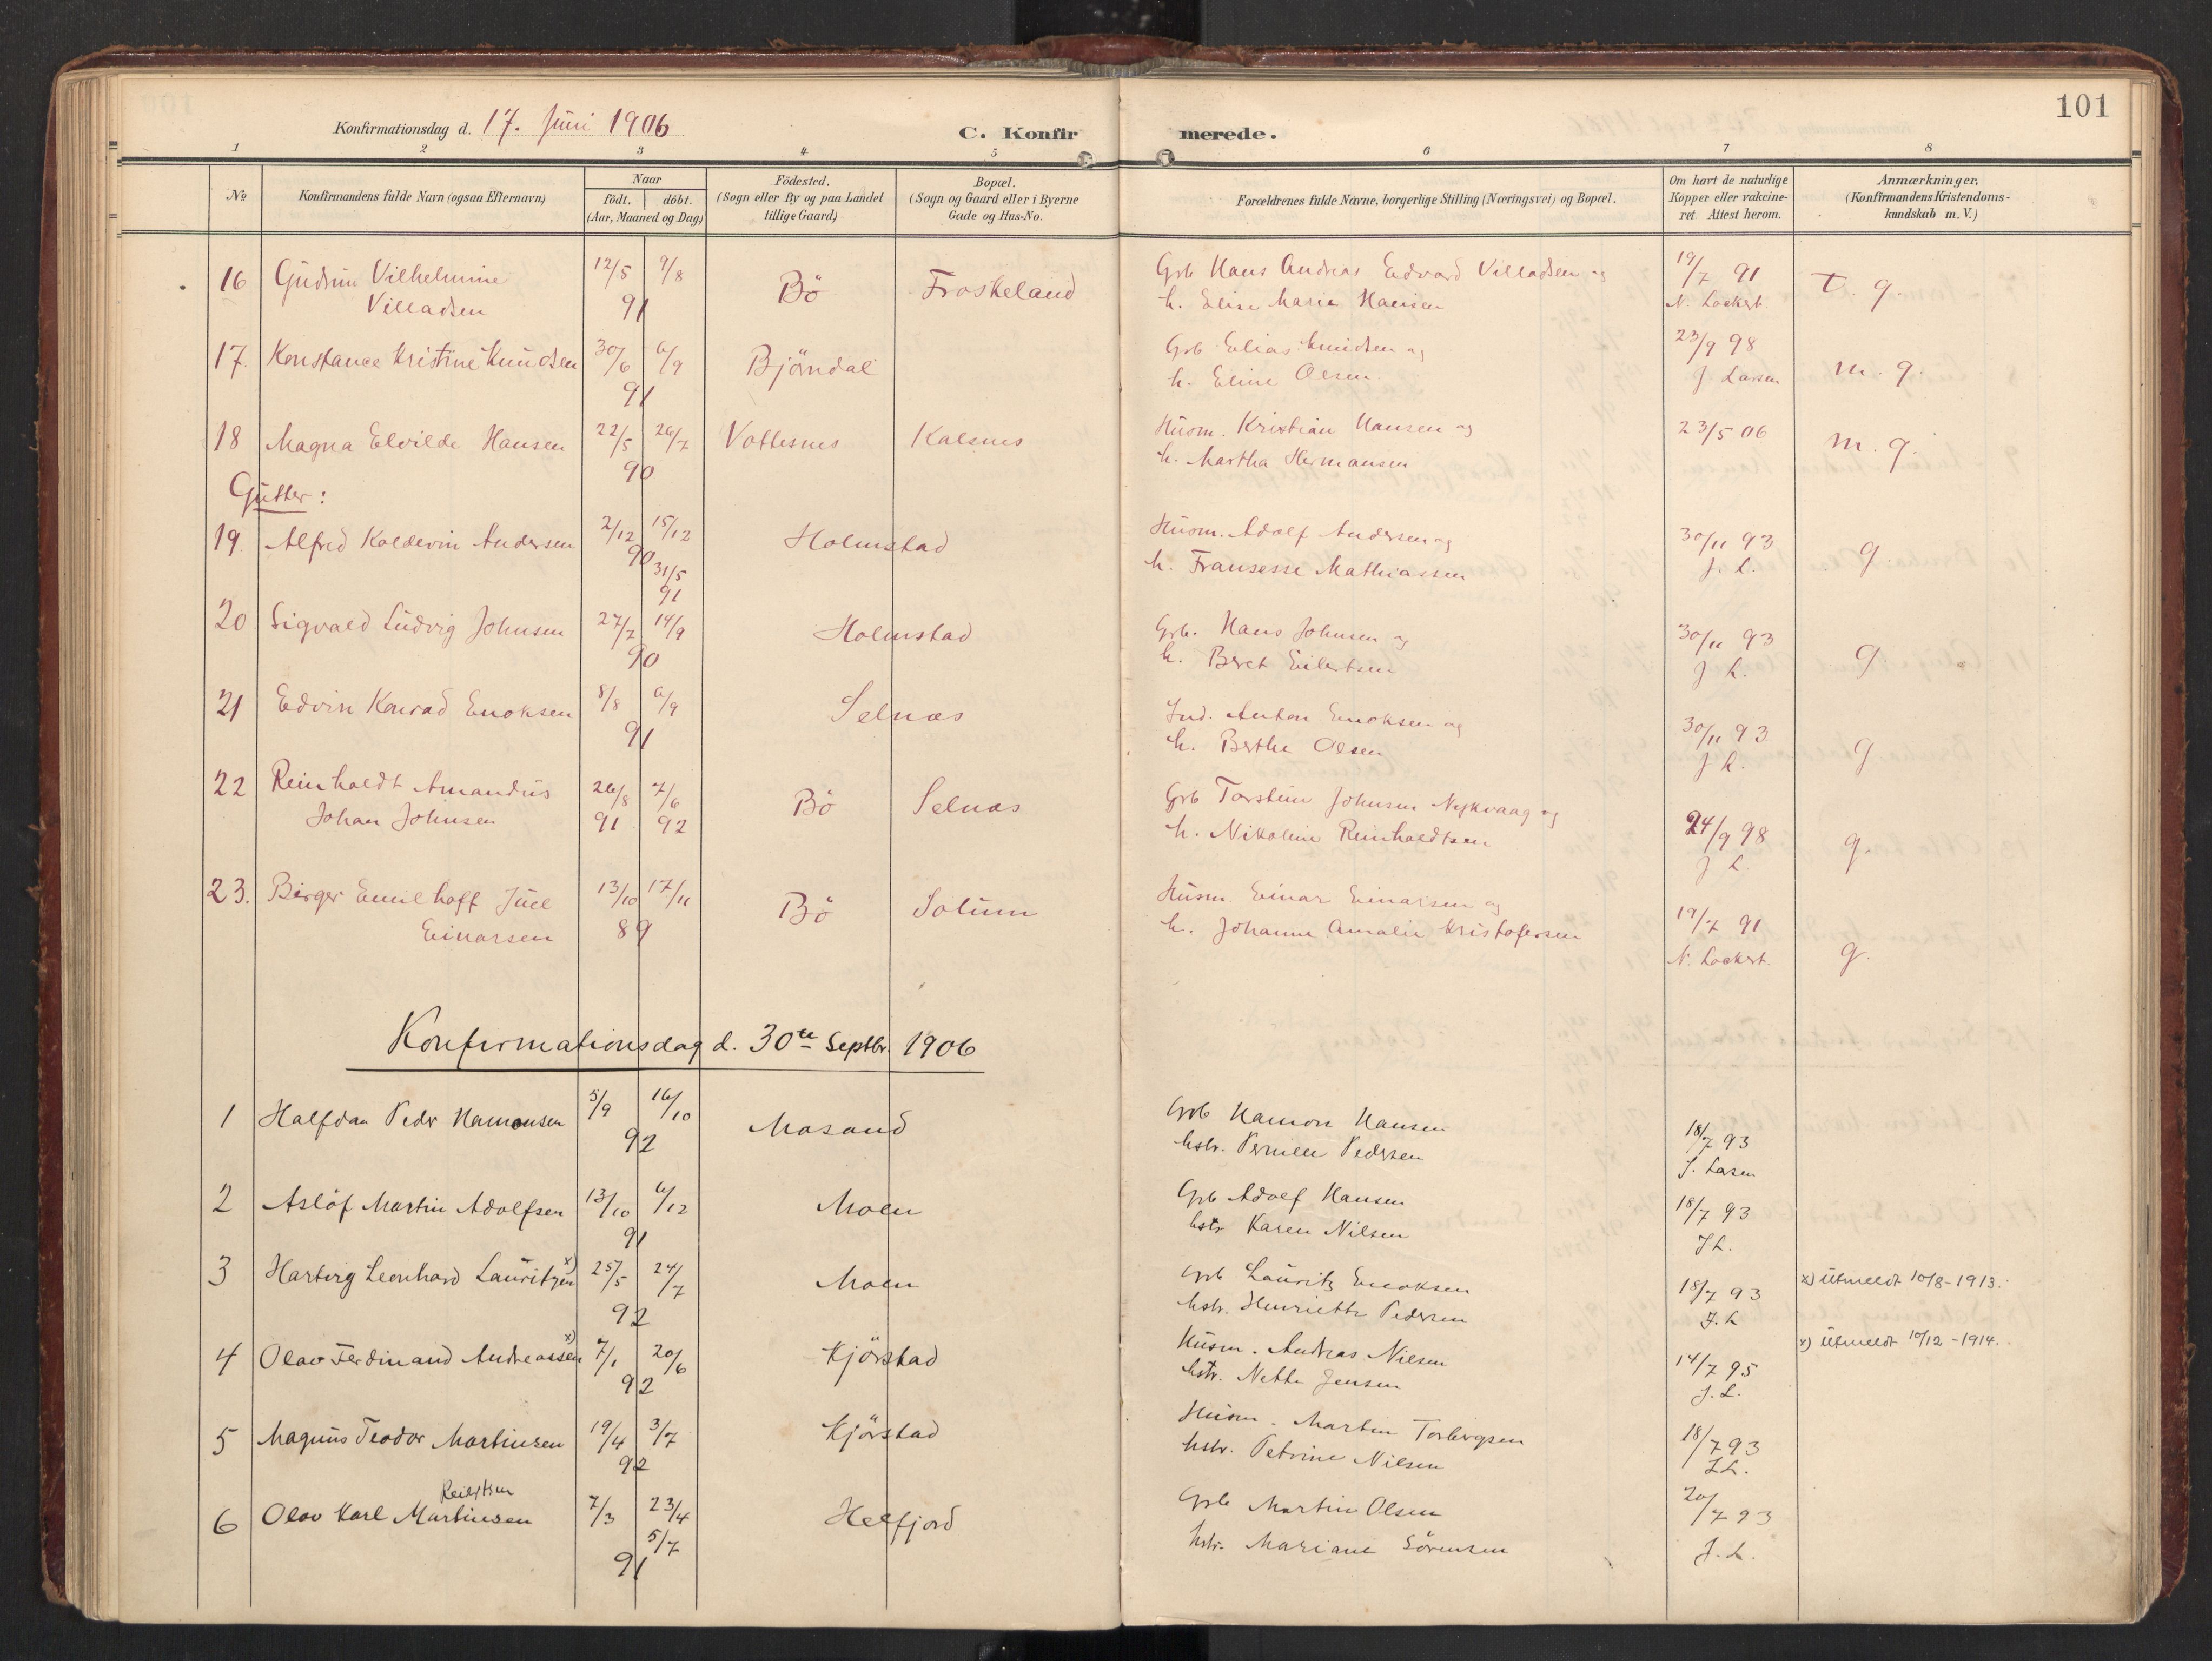 101
Konfirmationsdag d. 17. Juni 1906
C. Konfirmerede.
1 2 3 4 5 6 7 8
No
Konfirmandens fulde Navn (ogsaa Efternavn)
Naar
födt. döbt.
(Aar, Maaned og Dag)
Födested.
(Sogn eller By og paa Landet
tillige Gaard)
Bopæl.
(Sogn og Gaard eller i Byerne
Gade og Hus-No.
Forældrenes fulde Navne, borgerlige Stilling (Næringsvei) og Bopæl.
Om havt de naturlige
Kopper eller vakcine-
ret Attest herom.
Anmærkninger.
(Konfirmandens Kristendoms-
kundskab m. V.)
16 Gudrun Vilhelmine 12/5 9/8 Bö Froskeland Grb Hans Andreas Edvard Villadsen og 19/7 91 T. g.
Villadsen 91 h. Elise Marie Hansen N. Lockert
17. Konstance Kristine Knudsen 30/6 6/9 Bjørndal Grb Elias Knudsen og 23/9 98 m. g.
91 h. Eline Olsen J Larsen
18 Magna Elvilde Hansen 22/5 26/7 Vottesnes Kalsnes Husm. Kristian Hansen og 23/5 06 m. g.
90 h. Martha Hermansen
Gutter:
19. Alfred Koldevin Andersen 2/12 15/12 Holmstad Husm. Adolf Andersen og 30/11 93 g.
90 31/5 91 h. Fransesse Mathiassen J. L.
20 Sigvald Ludvig Johnsen 27/7 14/9 Holmstad Grb. Hans Johnsen og 30/11 93 g
90 h. Beret Eilertsen J L.
21 Edvin Konrad Enoksen 8/8 6/9 Selnæs Ind. Anton Enoksen og 30/11 93 g
91 h. Berthe Olsen J L.
22 Reinholdt Amandus 26/8 7/6 Bö Selnæs Grb Torstein Johnsen Nykvaag og 24/9 98 g.
Johan Johnsen 91 92 h. Nikoline Reinholdtsen J L.
23. Birger Emil Hoff Juel 13/10 17/11 Bö Solum Husm. Einar Einarsen og 19/7 91 g.
Einarsen 89 h. Johanne Amalie Kristofersen N. Lockert.
Konfirmationsdag d. 30te Septbr. 1906
1 Halfdan Peder Hamonsen 5/9 16/10 Masand Grb Hamon Hansen 18/7 93
92 hstr. Pernille Pedersen J. Larsen
2 Aslöf Martin Adolfsen 13/10 6/12 Moen Grb Adolf Hansen 18/7 93
91 hstr Karen Nilsen J L.
3 Hartvig Leonhard Lauritzen x) 25/5 24/7 Moen Grb Lauritz Enoksen 18/7 93 x) Utmeldt 10/8-1913.
92 hstr. Henriette Pedersen J. L
4 Olav Ferdinand Andreassen x) 7/1 20/6 Kjörstad Husm. Andreas Nilsen 14/7 95 x) Utmeldt 10/12-1914.
92 hstr. Nette Jensen J. L.
5 Magnus Teodor Martinsen 19/4 3/7 Kjörstad Husm. Martin Torbergsen 18/7 93
92 hstr. Petrine Nilsen J. L.
Reiertsen
6 Olav Karl Martinsen 7/3 23/4 Helfjord Grb Martin Olsen 20/7 93
5/7
91 hstr. Mariane Sörensen J. L.